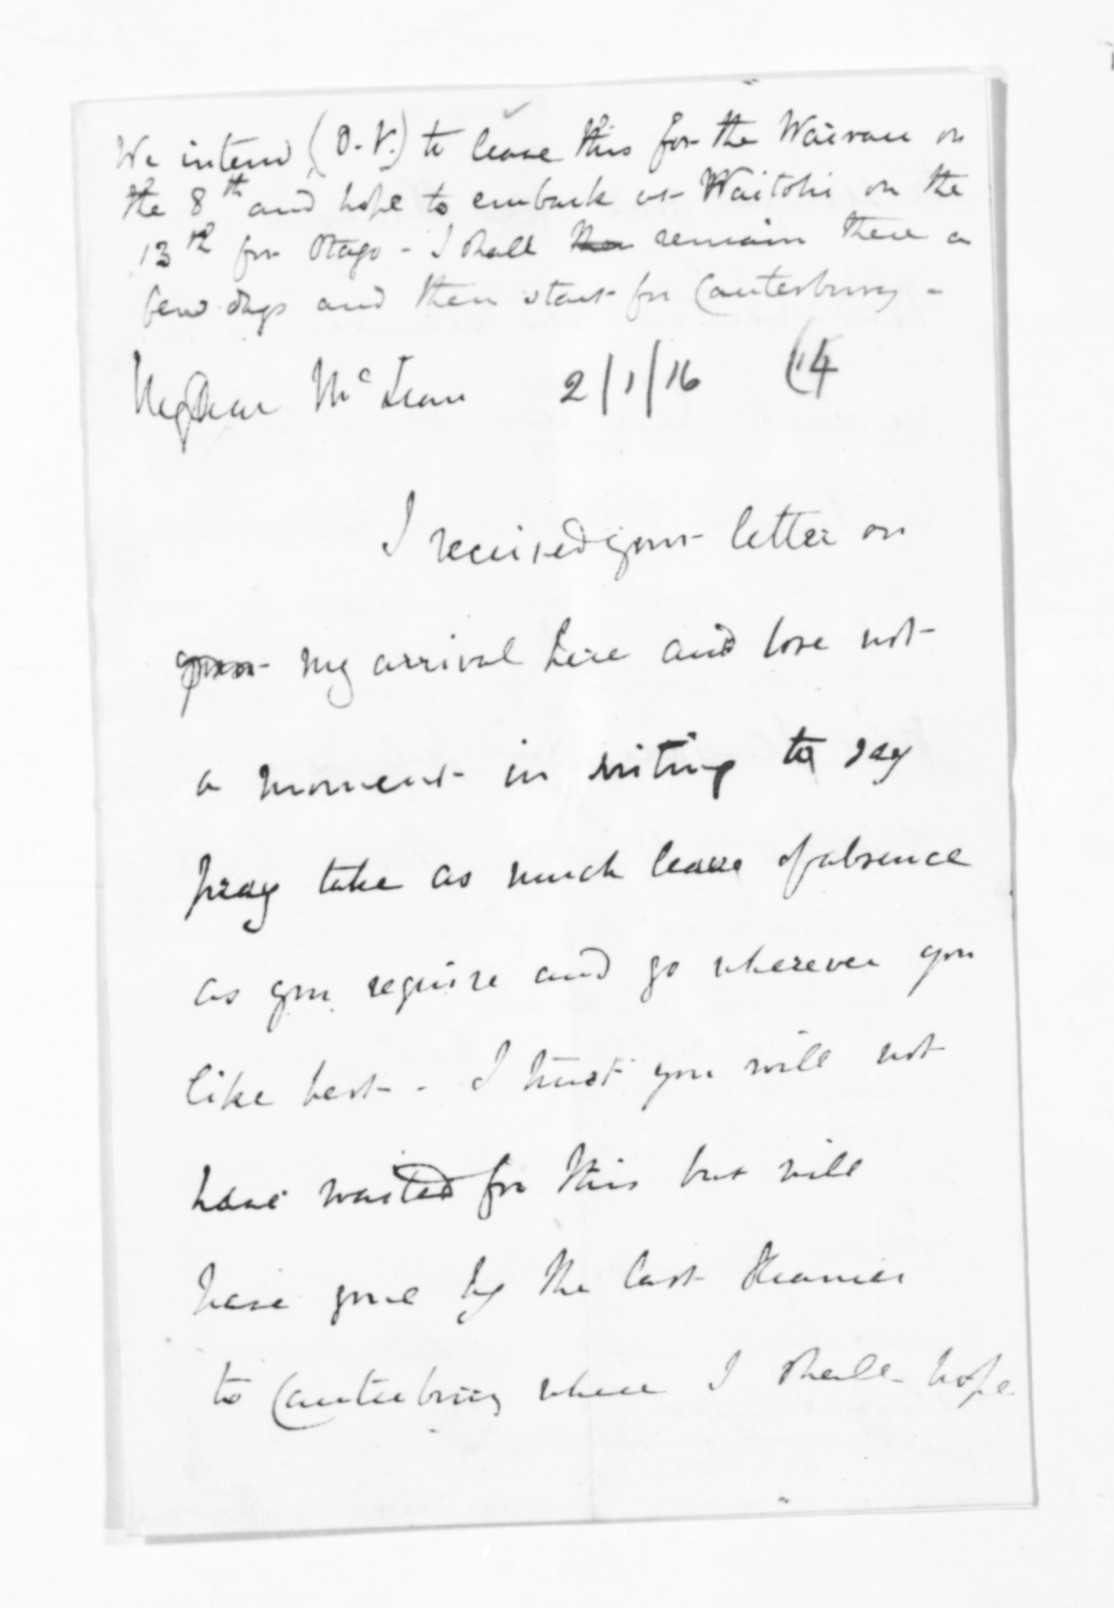 We intend (D.V.) to leave this for the Wairau on
the 8th and hope to embark at Waitohi on the
13th for Otago - I shall then remain there a
few days and then start for Canterbury -
My Dear McLean 2/1/16 (14
I received your letter on
my arrival here and lose not
a moment in writing to say
pray take as much leave of absence
as you require and go wherever you
like best - I trust you will not
have waited for this but will
have gone by the last steamer
to Canterbury where I shall hope